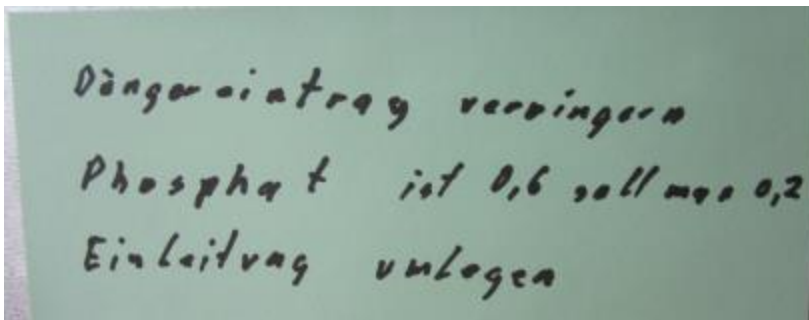 Düngereintrag verringern
Phosphat ist 0,6 soll max 0,2
Einleitung umlegen